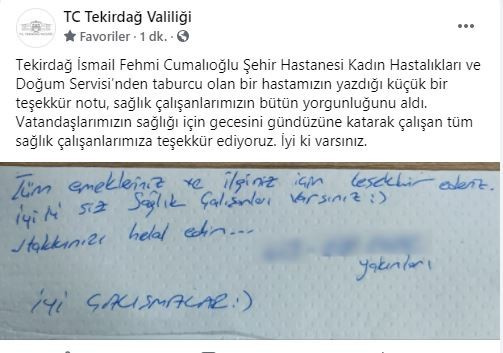 TC Tekirdağ Valiliği
Favoriler · 1 dk. ·
Tekirdağ İsmail Fehmi Cumalıoğlu Şehir Hastanesi Kadın Hastalıkları ve
Doğum Servisi'nden taburcu olan bir hastamızın yazdığı küçük bir
teşekkür notu, sağlık çalışanlarımızın bütün yorgunluğunu aldı.
Vatandaşlarımızın sağlığı için gecesini gündüzüne katarak çalışan tüm
sağlık çalışanlarımıza teşekkür ediyoruz. İyi ki varsınız.
Tüm emekleriniz ve ilginiz için teşekkür ederiz.
iyi ki siz Sağlık Çalışanları varsınız :)
Hakkınızı helal edin...
yakınları
İYİ ÇALIŞMALAR :)